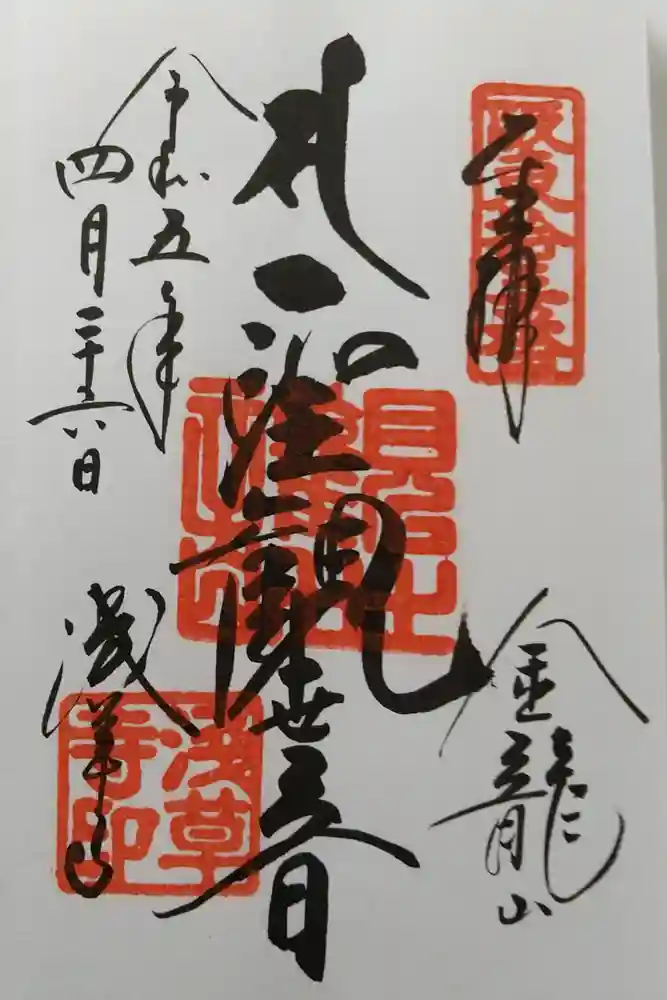 奉拝
坂東拾三番
金龍山
聖観世音
令和五年
四月二十六日
浅草寺
浅草寺印